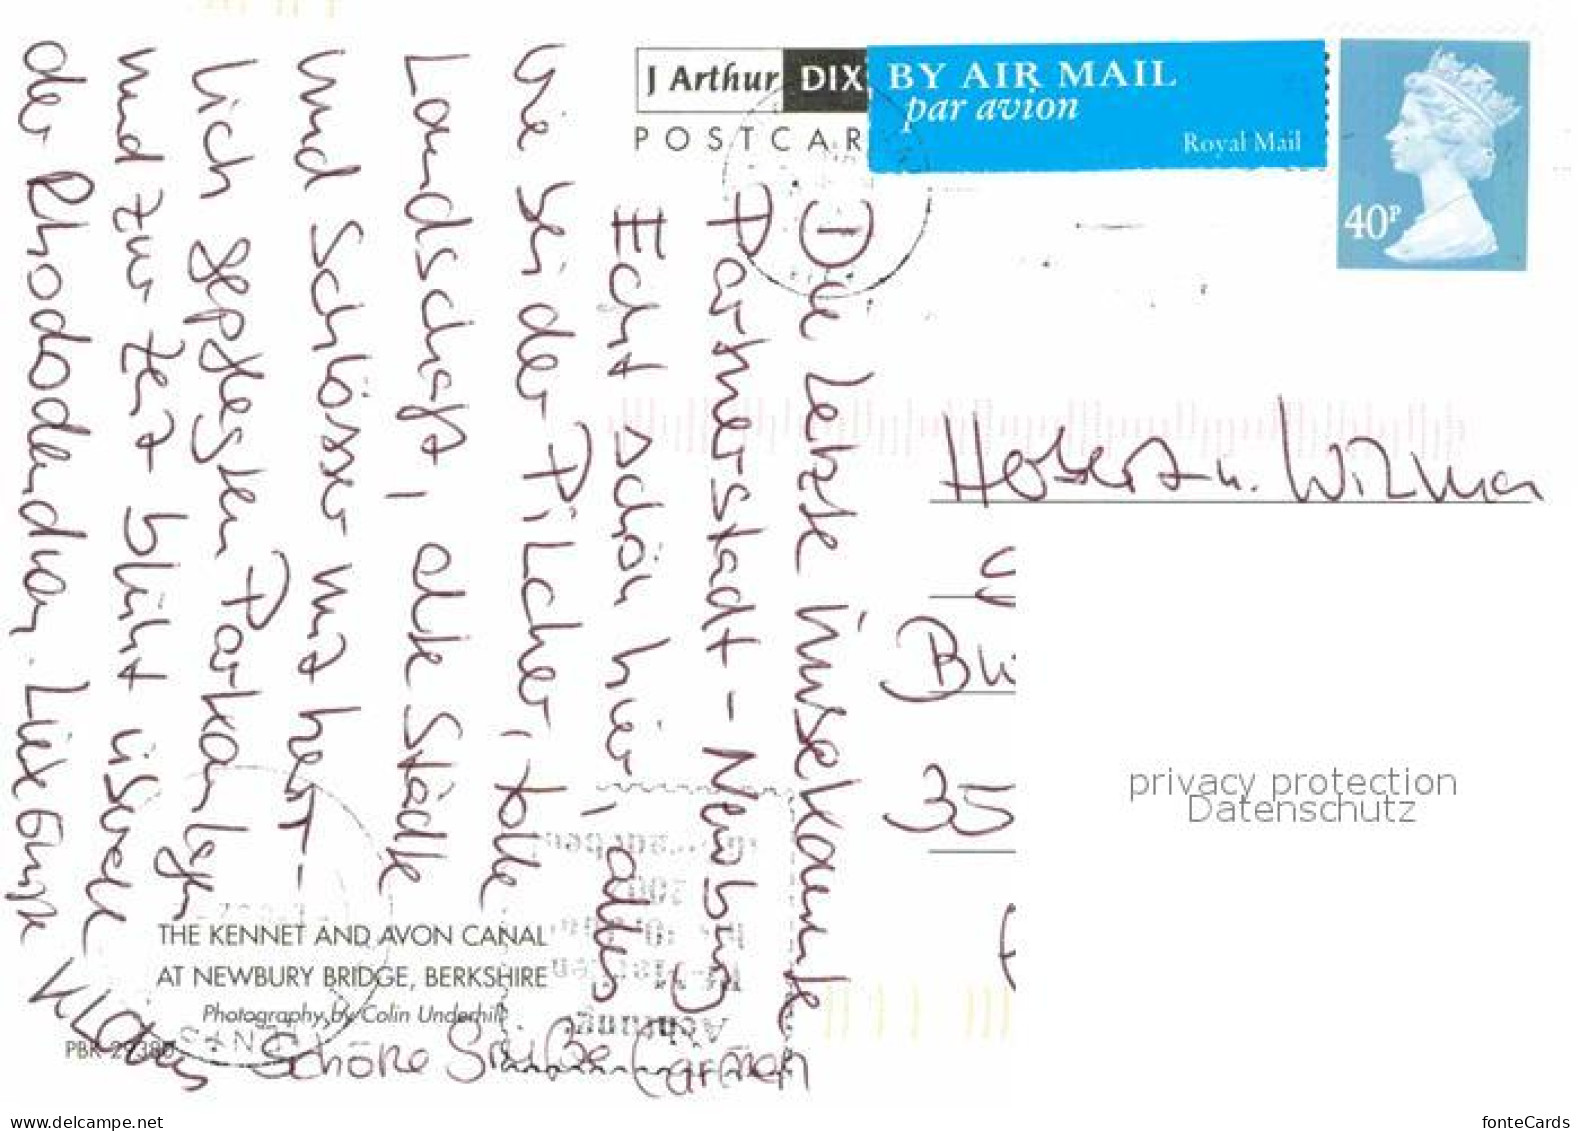 J Arthur DIX
POSTCAR
BY AIR MAIL
par avion
Royal Mail
40P
Die letzte unbekannte
Partnerstadt - Newburg
Echt schön hier, alles
wie bei der Pilcher, tolle
Landschaft, alte Städte
und Schlösser mit herr-
lich gepflegten Parkanlagen
und zur Zeit blüht überall
der Rhododendron. Liebe Grüße
Klaus
Schöne Grüße Carmen
u. Wilma
35
privacy protection
Datenschutz
THE KENNET AND AVON CANAL
AT NEWBURY BRIDGE, BERKSHIRE
Photography by Colin Underhill
www.delcampe.net
fonteCards